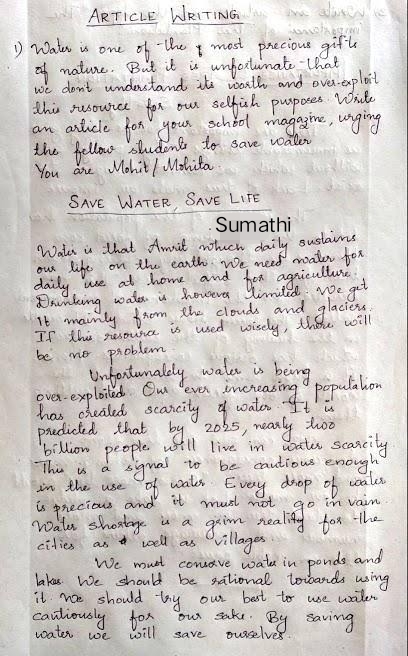 ARTICLE WRITING
1) Water is one of the most precious gifts
of nature. But it is unfortunate that
we don't understand its worth and over-exploit
this resource for our selfish purposes. Write
an article for your school magazine, urging
the fellow students to save water.
You are Mohit/Mohita.
SAVE WATER, SAVE LIFE
Sumathi
Water is that Amrit which daily sustains
our life on the earth. We need water for
daily use at home and for agriculture.
Drinking water is however limited. We get
It mainly from the clouds and glaciers.
If this resource is used wisely, there will
be no problem.
Unfortunately water is being
over-exploited. Our ever increasing population
has created scarcity of water. It is
predicted that by 2025, nearly two
billion people will live in water scarcity.
This is a signal to be cautious enough
in the use of water. Every drop of water
is precious and it must not go in vain.
Water shortage is a grim reality for the
cities as well as villages.
We must conserve water in ponds and
lakes. We should be rational towards using
it. We should try our best to use water
cautiously for our sake. By saving
water we will save ourselves.